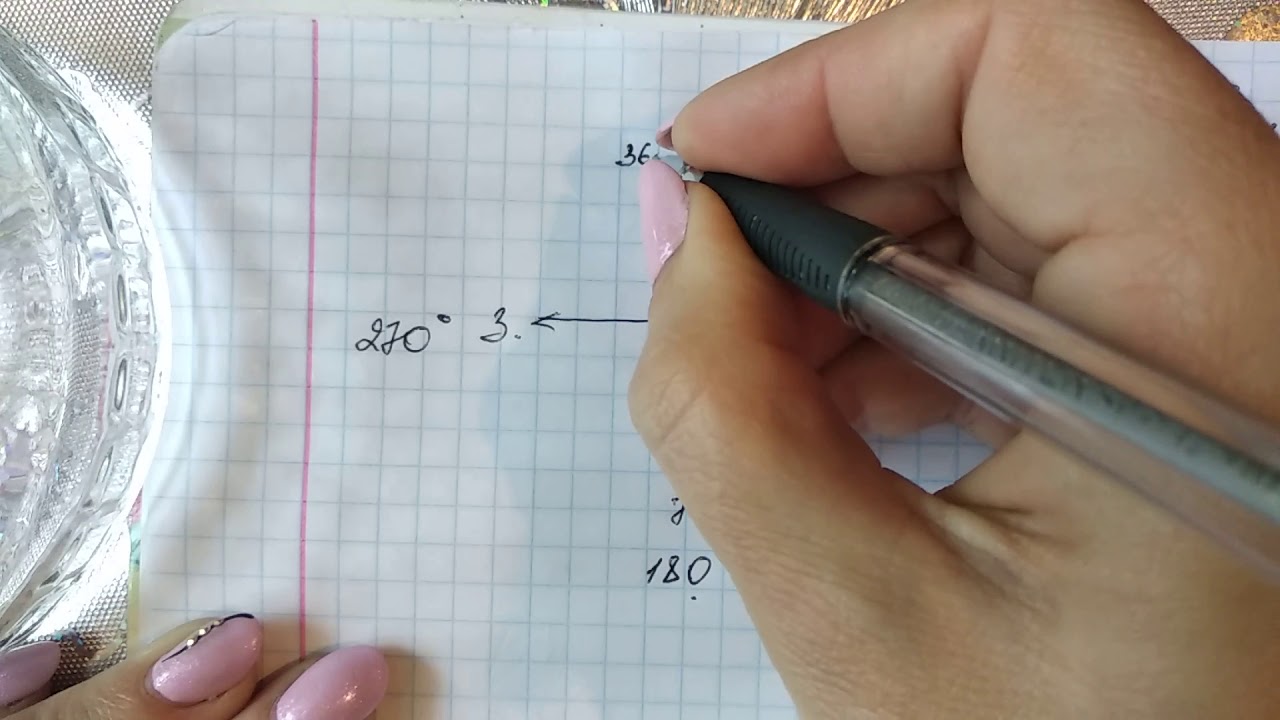 36
270° З.
180